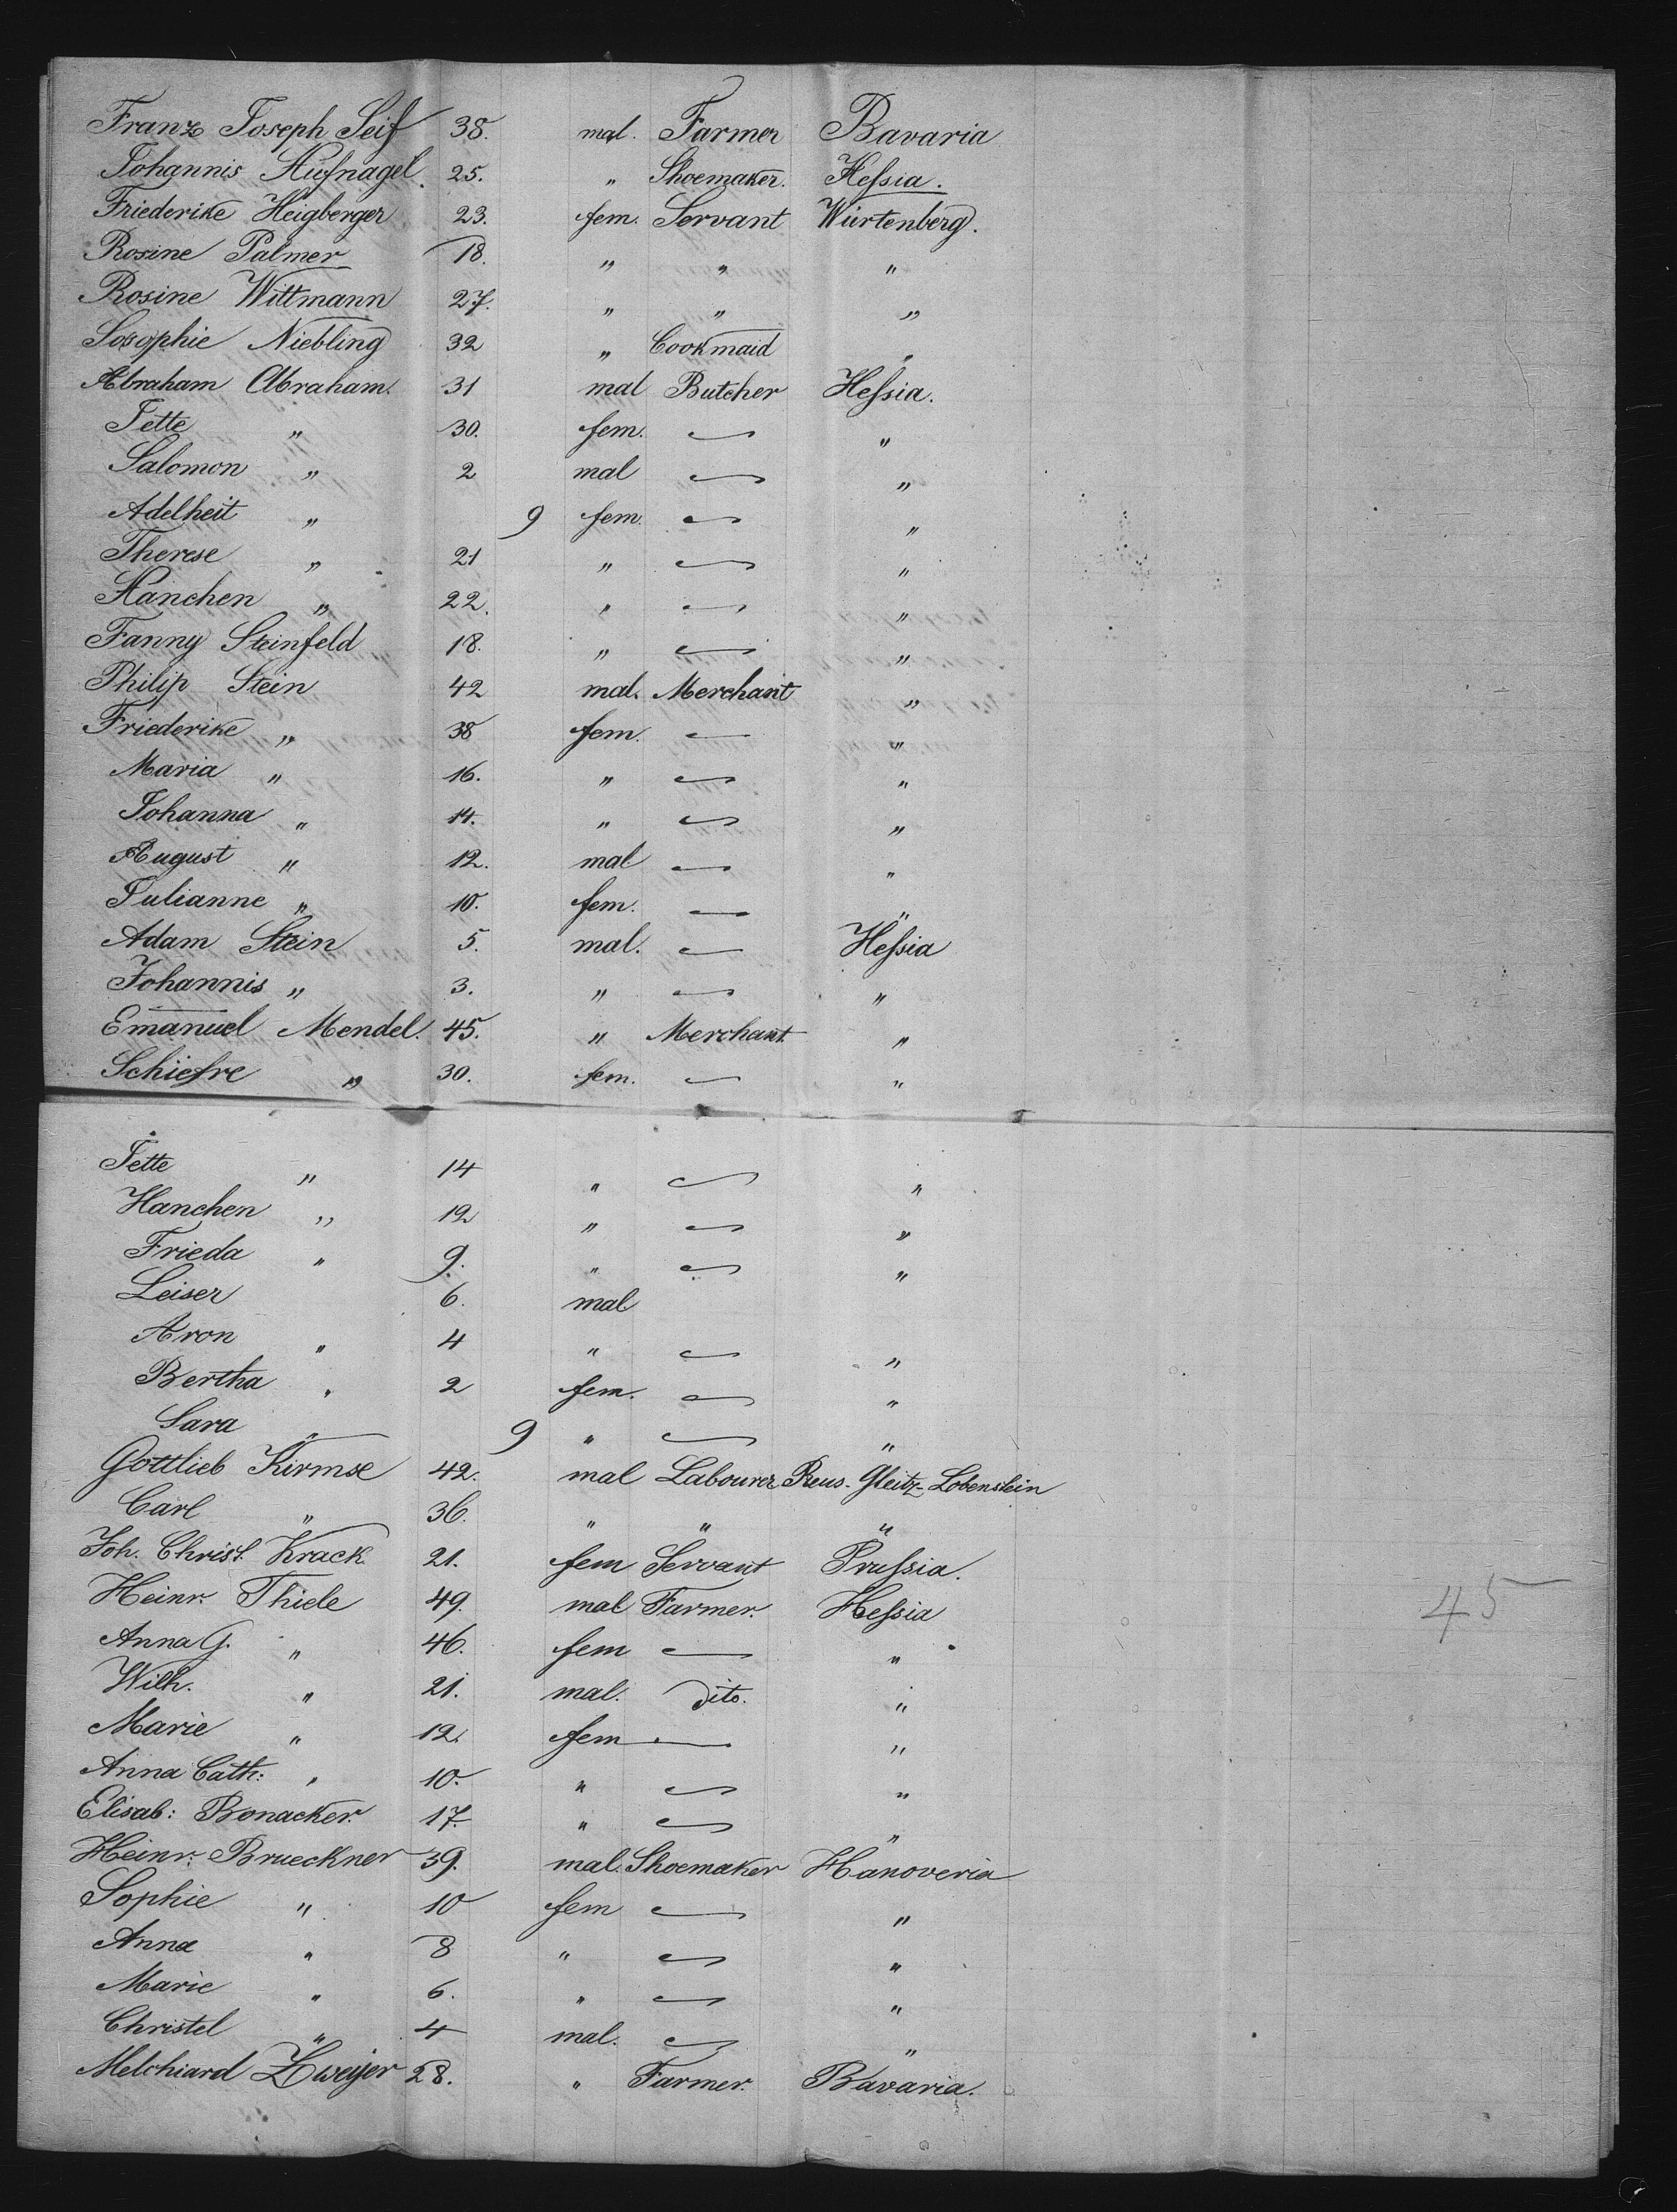 Franz Joseph Seif 38. mal. Farmer Bavaria
Johannis Hufnagel 25. " Shoemaker. Hessia.
Friederike Heigberger 23. fem. Servant Würtenberg.
Rosine Palmer 18. " " "
Rosine Wittmann 27. " " "
Sosophie Niebling 32 " Cookmaid "
Abraham Abraham. 31 mal Butcher Hessia.
Jette " 30. fem. — "
Salomon " 2 mal — "
Adelheit " 9 fem. — "
Therese " 21 " — "
Hanchen " 22. " — "
Fanny Steinfeld 18. " — "
Philip Stein 42 mal. Merchant "
Friederike " 38 fem. — "
Maria " 16. " — "
Johanna " 14. " — "
August " 12. mal — "
Julianne " 10. fem. — "
Adam Stein 5. mal. — Hessia
Johannis " 3. " — "
Emanuel Mendel. 45. " Merchant. "
Schiefre " 30. fem. — "
Jette " 14 " — "
Hanchen " 12 " — "
Frieda " 9. " — "
Leiser 6. mal.
Aron " 4 " — "
Bertha " 2 fem. — "
Sara " 9 " — "
Gottlieb Kirmse 42. mal Labourer Reus-Gleitz-Lobenstein
Carl " 36. " " "
Joh. Christ. Krack 21. fem Servant Prussia.
Heinr. Thiele 49. mal Farmer. Hessia
Anna G. " 46. fem — "
Wilh. " 21. mal. dito. "
Marie " 12. fem — "
Anna Cath: " 10. " — "
Elisab: Bonacker. 17. " — "
Heinr. Brueckner 39. mal. Shoemaker Hanoveria
Sophie " 10 fem — "
Anna " 8 " — "
Marie " 6. " — "
Christel " 4 mal. — "
Melchiard Zweyer 28. " Farmer. Bavaria.
45